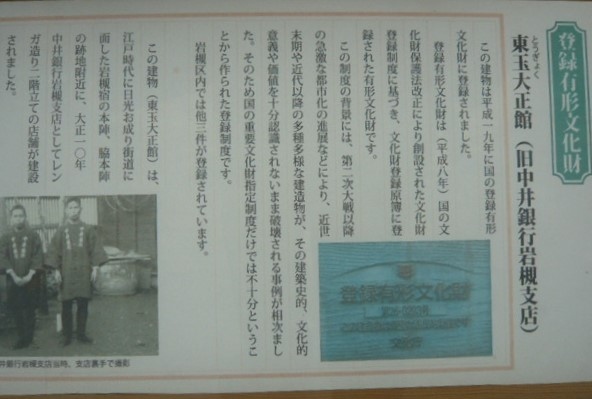 登録有形文化財
とうぎょく
東玉大正館（旧中井銀行岩槻支店）
この建物は平成一九年に国の登録有形
文化財に登録されました。
登録有形文化財は（平成八年）国の文
化財保護法改正により創設された文化財
登録制度に基づき、文化財登録原簿に登
録された有形文化財です。
この制度の背景には、第二次大戦以降
の急激な都市化の進展などにより、近世
末期や近代以降の多種多様な建造物が、その建築史的、文化的
意義や価値を十分認識されないまま破壊される事例が相次まし
た。そのため国の重要文化財指定制度だけでは不十分というこ
とから作られた登録制度です。
岩槻区内では他三件が登録されています。
この建物（東玉大正館）は、
江戸時代に日光お成り街道に
面した岩槻宿の本陣、脇本陣
の跡地附近に、大正一〇年
中井銀行岩槻支店としてレン
ガ造り二階立ての店舗が建設
されました。
登録有形文化財
井銀行岩槻支店当時、支店裏手で撮影